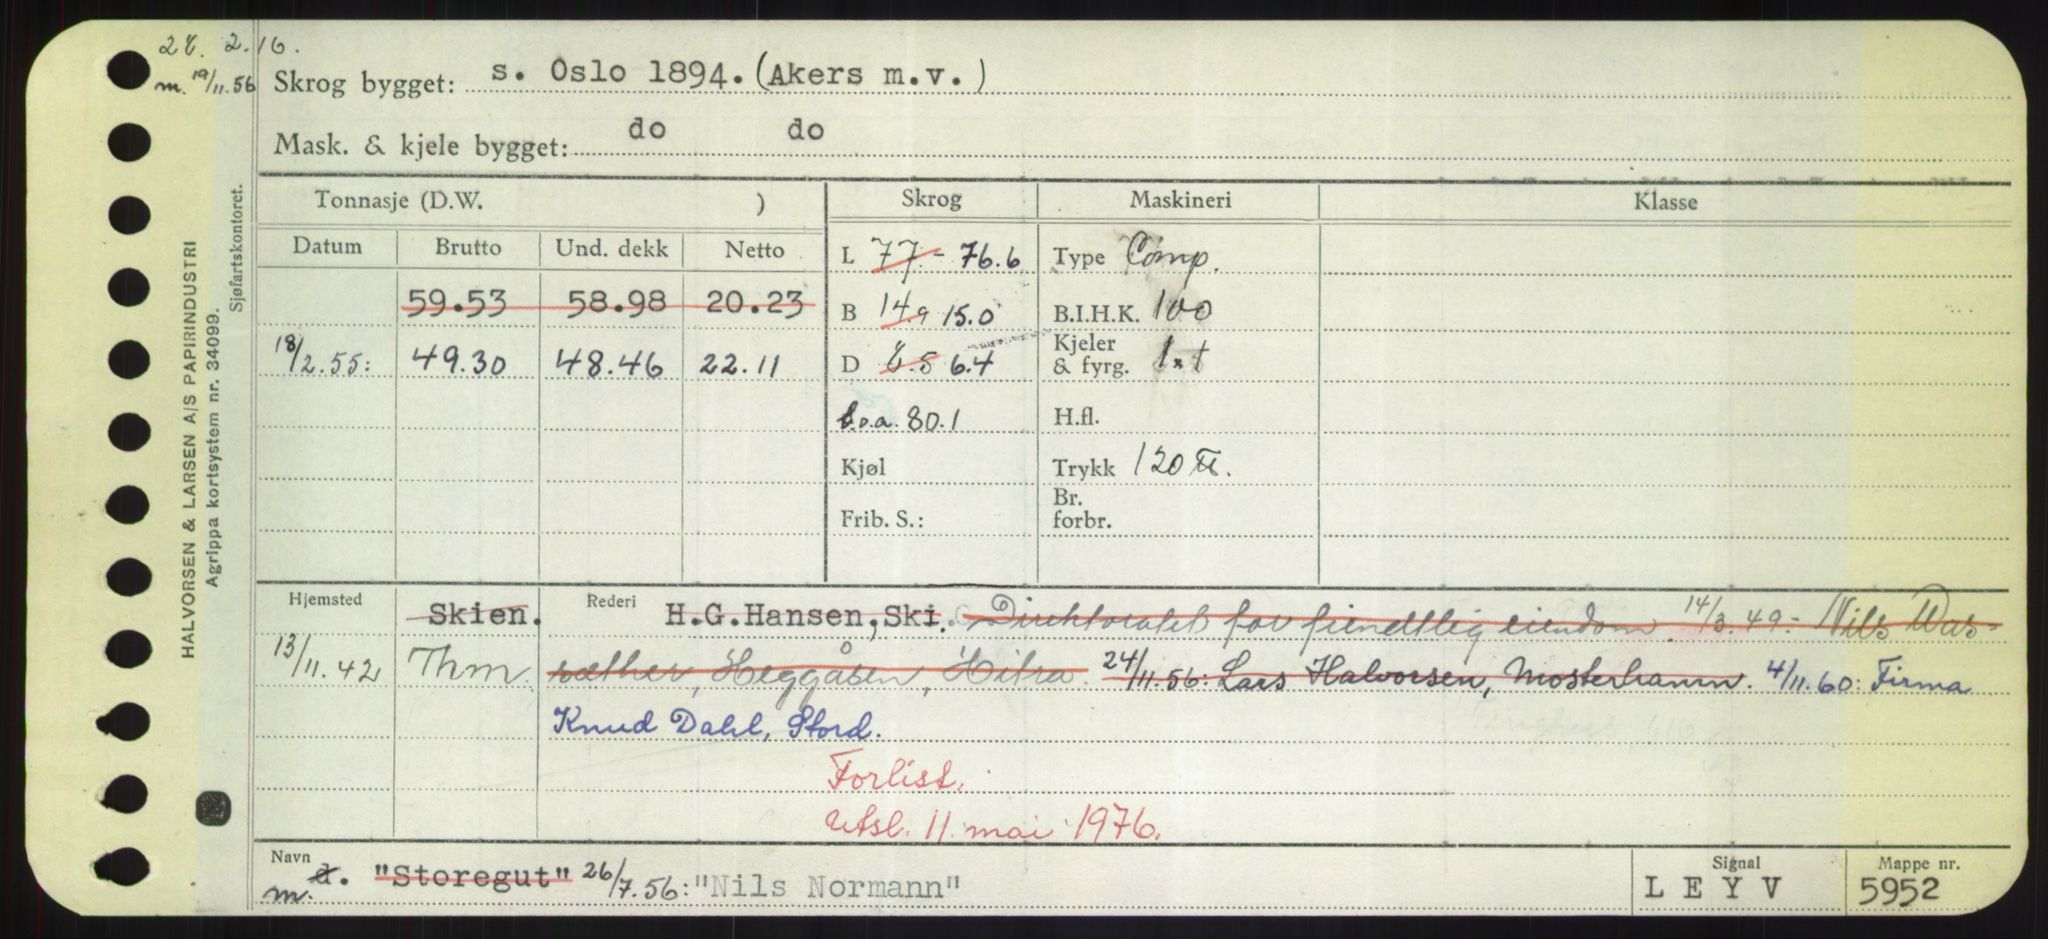 28. 2.16.
m. 19/11.56
Skrog bygget: s. Oslo 1894. (Akers m.v.)
Mask. & kjele bygget: do do
HALVORSEN & LARSEN A/S PAPIRINDUSTRI
Agrippa kortsystem nr. 34099.
Sjøfartskontoret.
Tonnasje (D.W. ) Skrog Maskineri Klasse
Datum Brutto Und. dekk Netto
L 77.- 76.6 Type Comp.
59.53 58.98 20.23
B 14.9 15.0 B.I.H.K. 100
18/2.55: 49.30 48.46 22.11
D 8.5 6.4 Kjeler & fyrg.
l.o.a. 80.1 H.fl.
Kjøl Trykk 120 ℔.
Frib. S.: Br. forbr.
Hjemsted Skien. Rederi H.G.Hansen, Ski. Direktoratet for fiendtlig eiendom. 14/3.49:- Nils Was-
13/11.42 Thm. sæther, Heggåsen, Hitra. 24/11.56: Lars Halvorsen, Mosterhamn. 4/11.60: Firma
Knud Dahl, Stord.
Forlist.
Utsl. 11. mai 1976.
Navn m. d. "Storegut" 26/7.56: "Nils Normann"
Signal LEYV
Mappe nr. 5952